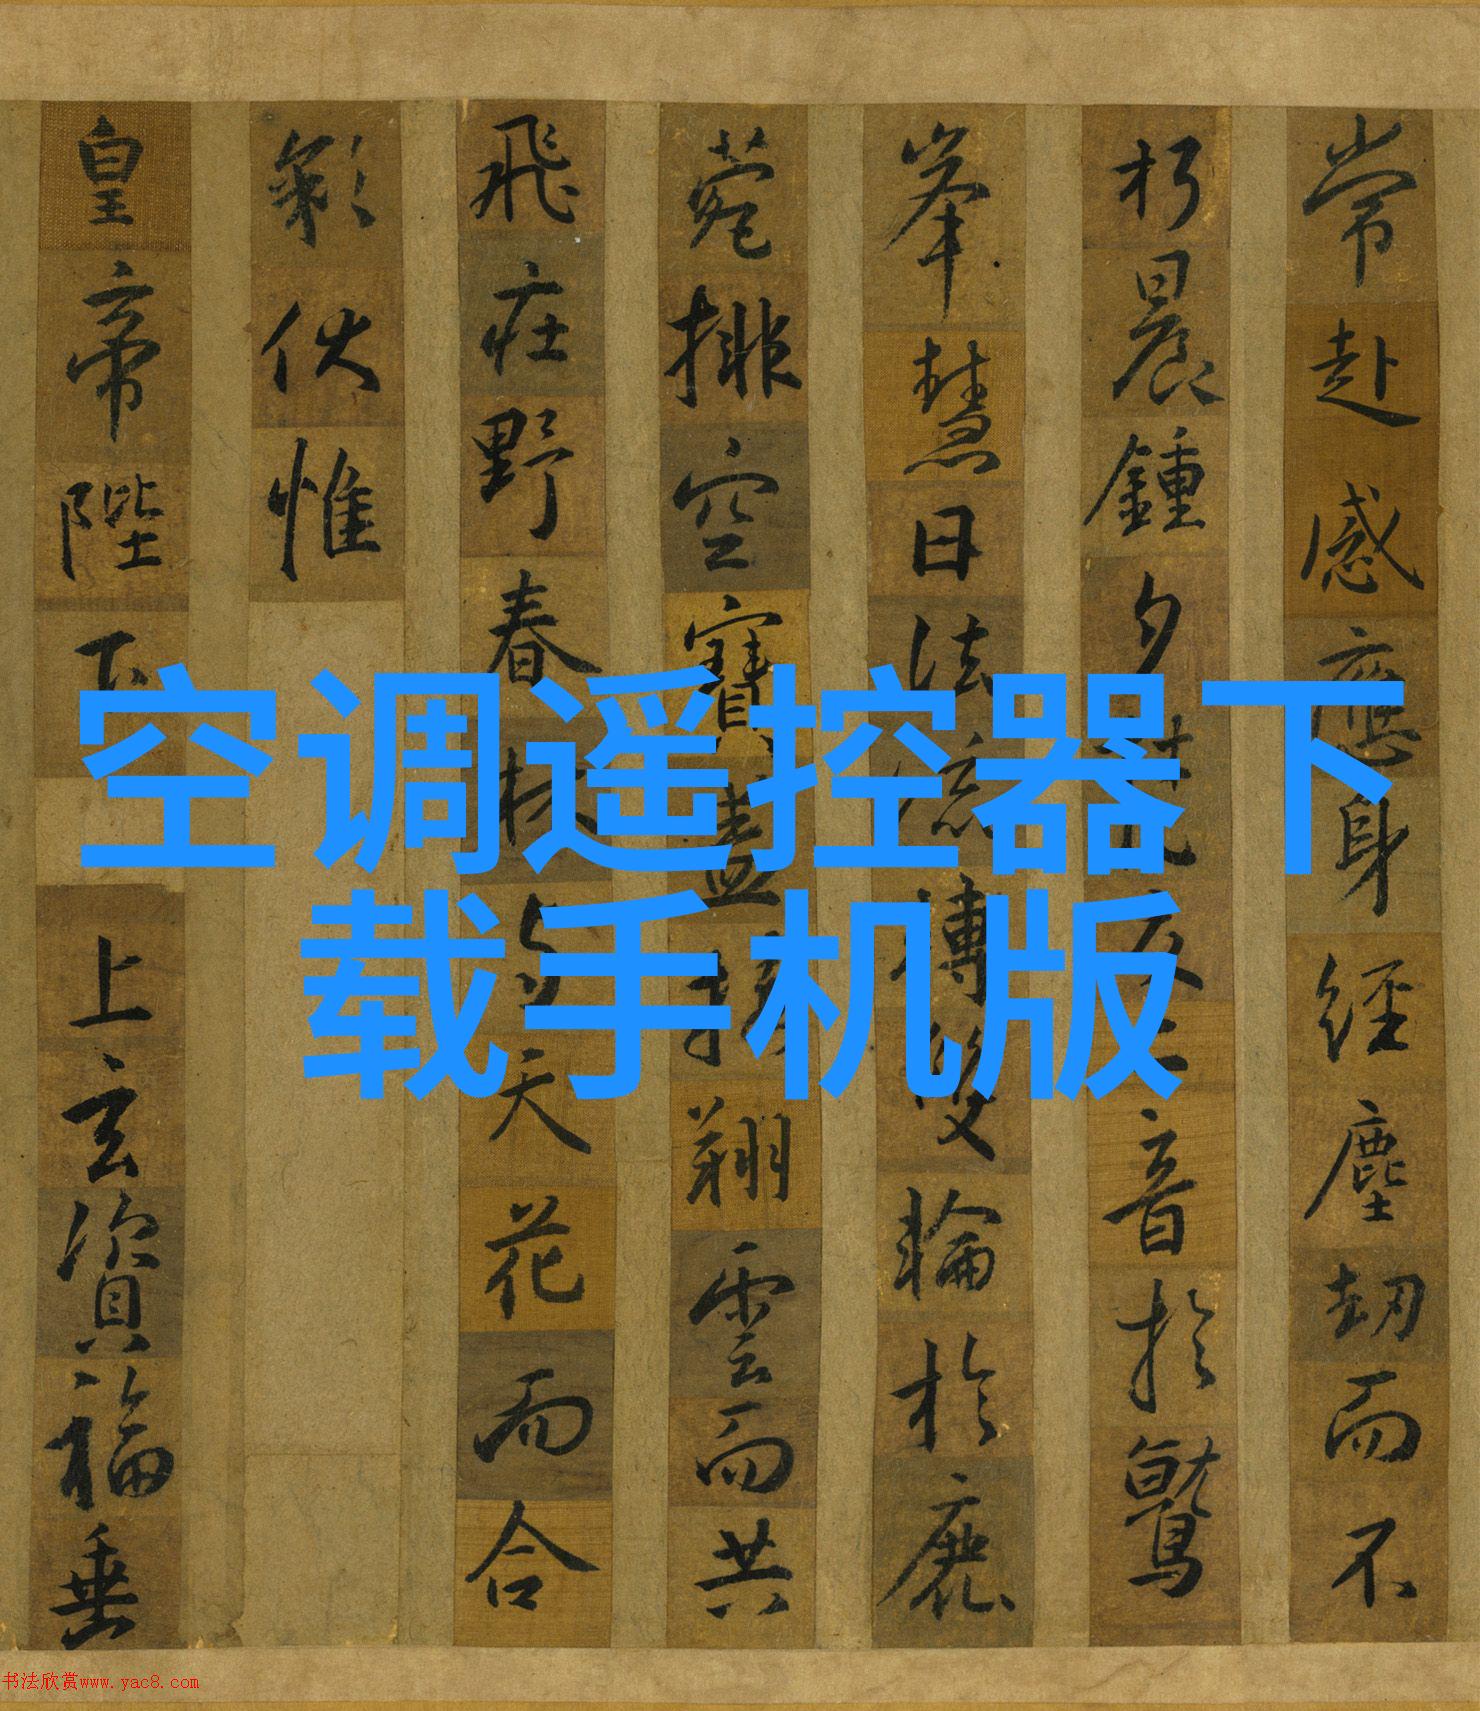 常赴感應身經塵劫而不
朽晨鍾夕梵交二音於鷲
峯慧日法流轉雙輪於鹿
菀排空寶蓋接翔雲而共
飛莊野春林与天花而合
彩伏惟
皇帝陛下
上玄資福垂
空调遥控器下
载手机版
书法欣赏www.yac8.com